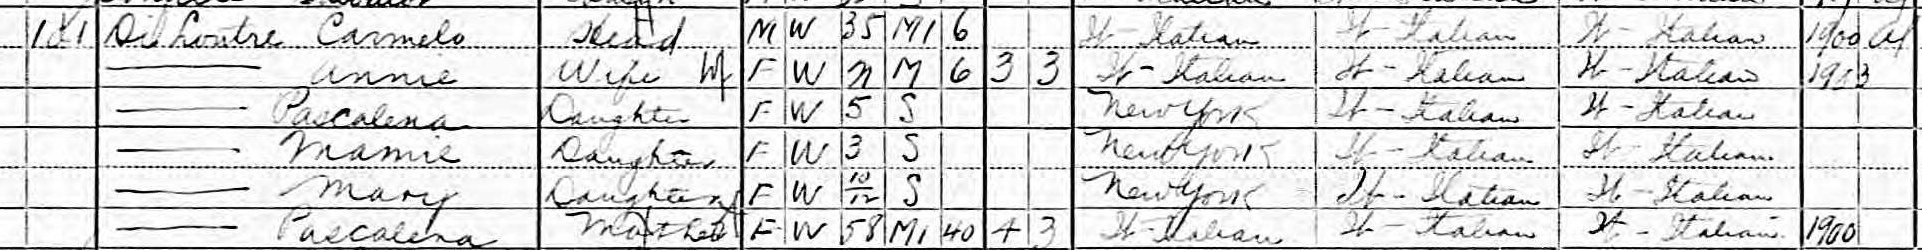 Di Contre Carmelo Head M W 35 M1 6 It-Italian It-Italian It-Italian 1900 Al
— Annie Wife F W M 6 3 3 It-Italian It-Italian It-Italian 1903
— Pascalena Daughter F W 5 S New York It-Italian It-Italian
— Mamie Daughter F W 3 S New York It-Italian It-Italian
— Mary Daughter F W 10/12 S New York It-Italian It-Italian
— Pascalena Mother F W 58 M1 40 4 3 It-Italian It-Italian It-Italian 1900